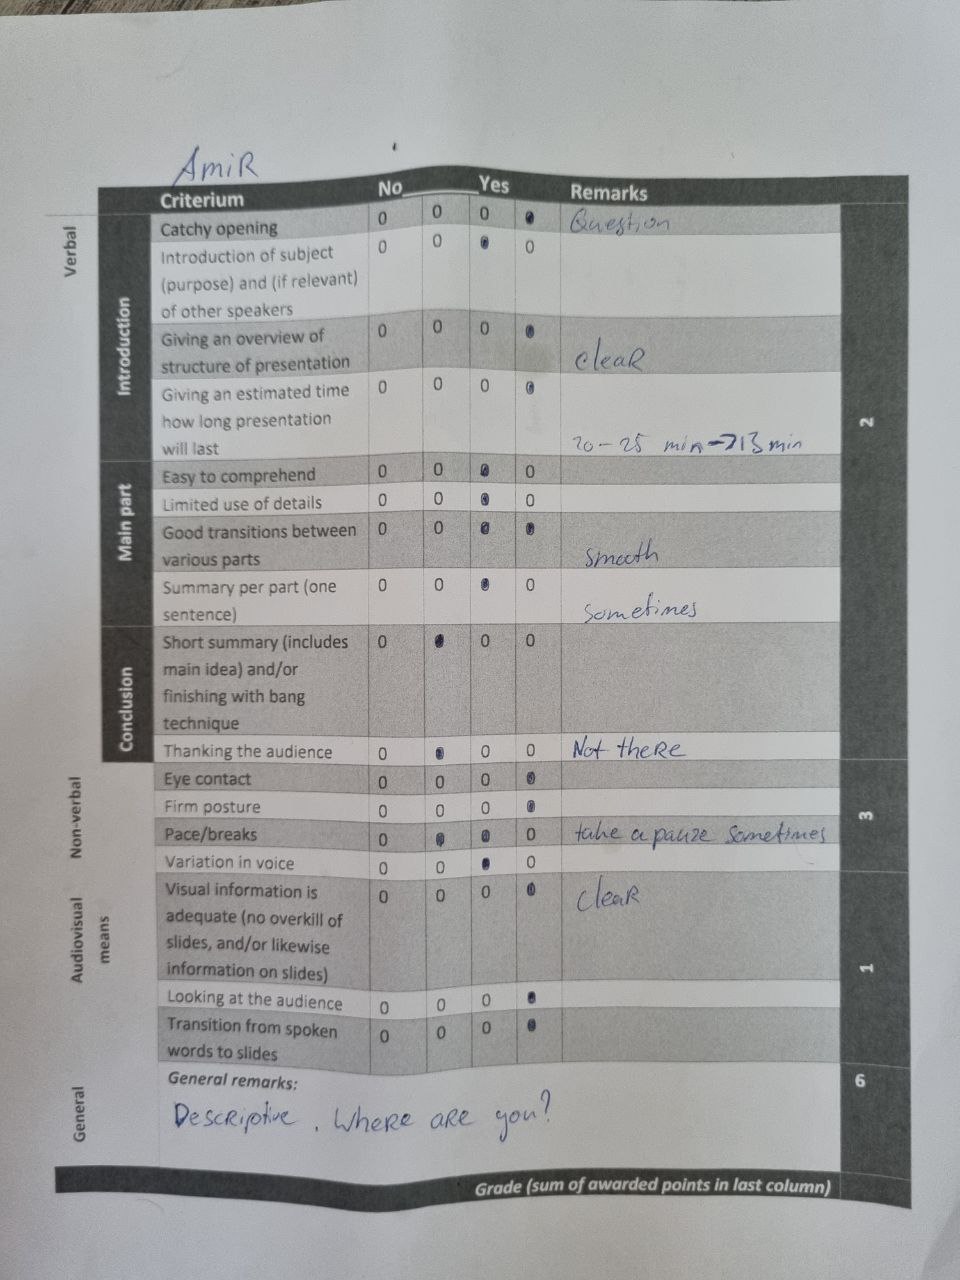 AmiR
Criterium No Yes Remarks
Verbal
Introduction
Catchy opening 0 0 0 Question
Introduction of subject 0 0 0
(purpose) and (if relevant)
of other speakers
Giving an overview of 0 0 0
structure of presentation clear
Giving an estimated time 0 0 0
how long presentation
will last 20-25 min → 13 min
2
Main part
Easy to comprehend 0 0 0
Limited use of details 0 0 0
Good transitions between 0 0
various parts smooth
Summary per part (one 0 0 0
sentence) sometimes
Conclusion
Short summary (includes 0 0 0
main idea) and/or
finishing with bang
technique
Thanking the audience 0 0 0 Not there
Non-verbal
Eye contact 0 0 0
Firm posture 0 0 0
Pace/breaks 0 0 take a pauze sometimes
Variation in voice 0 0 0
3
Audiovisual
means
Visual information is 0 0 0 clear
adequate (no overkill of
slides, and/or likewise
information on slides)
Looking at the audience 0 0 0
Transition from spoken 0 0 0
words to slides
1
General
General remarks: 6
Descriptive. Where are you?
Grade (sum of awarded points in last column)